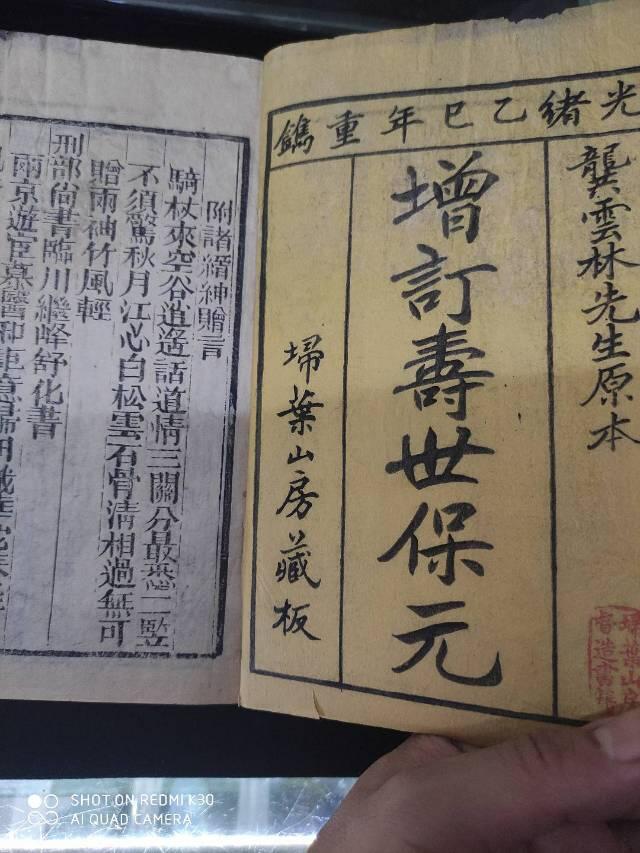 光緒乙巳年重鐫
龔雲林先生原本
增訂壽世保元
埽葉山房藏板
埽葉山房
督造書籍
附諸縉紳贈言
騎杖來空谷逍遥話道情三關分最恐二竪
不須驚秋月江心白松雲石骨清相過無可
贈兩袖竹風輕
刑部尚書臨川繼峰舒化書
兩京遊宦慕醫和
SHOT ON REDMI K30
AI QUAD CAMERA